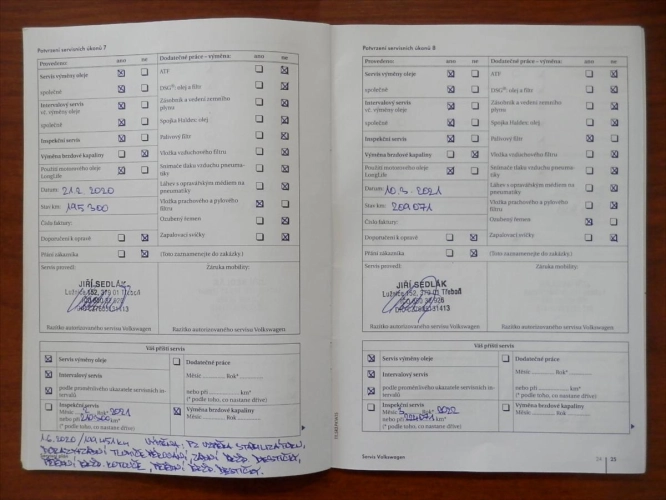 Potvrzení servisních úkonů 7
Provedeno: ano ne
Servis výměny oleje
společně
Intervalový servis
vč. výměny oleje
společně
Inspekční servis
Výměna brzdové kapaliny
Použití motorového oleje
LongLife
Datum: 21.2. 2020
Stav km: 195 300
Číslo faktury:
Doporučení k opravě
Přání zákazníka
Dodatečné práce – výměna: ano ne
ATF
DSG®: olej a filtr
Zásobník a vedení zemního
plynu
Spojka Haldex: olej
Palivový filtr
Vložka vzduchového filtru
Snímače tlaku vzduchu pneuma-
tiky
Láhev s opravárským médiem na
pneumatiky
Vložka prachového a pylového
filtru
Ozubený řemen
Zapalovací svíčky
(Toto zaznamenejte do zakázky.)
Servis provedl:
JIŘÍ SEDLÁK
Záruka mobility:
Razítko autorizovaného servisu Volkswagen
Razítko autorizovaného servisu Volkswagen
Váš příští servis
Servis výměny oleje
Intervalový servis
podle proměnlivého ukazatele servisních in-
tervalů
Inspekční servis
Měsíc 2 Rok* 2021
nebo při km*
(* podle toho, co nastane dříve)
Dodatečné práce
Měsíc Rok*
nebo při km*
(* podle toho, co nastane dříve)
Výměna brzdové kapaliny
Měsíc Rok
Potvrzení servisních úkonů 8
Provedeno: ano ne
Servis výměny oleje
společně
Intervalový servis
vč. výměny oleje
společně
Inspekční servis
Výměna brzdové kapaliny
Použití motorového oleje
LongLife
Datum: 10.3. 2021
Stav km: 209 071
Číslo faktury:
Doporučení k opravě
Přání zákazníka
Dodatečné práce – výměna: ano ne
ATF
DSG®: olej a filtr
Zásobník a vedení zemního
plynu
Spojka Haldex: olej
Palivový filtr
Vložka vzduchového filtru
Snímače tlaku vzduchu pneuma-
tiky
Láhev s opravárským médiem na
pneumatiky
Vložka prachového a pylového
filtru
Ozubený řemen
Zapalovací svíčky
(Toto zaznamenejte do zakázky.)
Servis provedl:
JIŘÍ SEDLÁK
Záruka mobility:
Razítko autorizovaného servisu Volkswagen
Razítko autorizovaného servisu Volkswagen
Váš příští servis
Servis výměny oleje
Intervalový servis
podle proměnlivého ukazatele servisních in-
tervalů
Inspekční servis
Měsíc 3 Rok* 2022
nebo při km*
(* podle toho, co nastane dříve)
Dodatečné práce
Měsíc Rok*
nebo při km*
(* podle toho, co nastane dříve)
Výměna brzdové kapaliny
Měsíc Rok
Servis Volkswagen
25